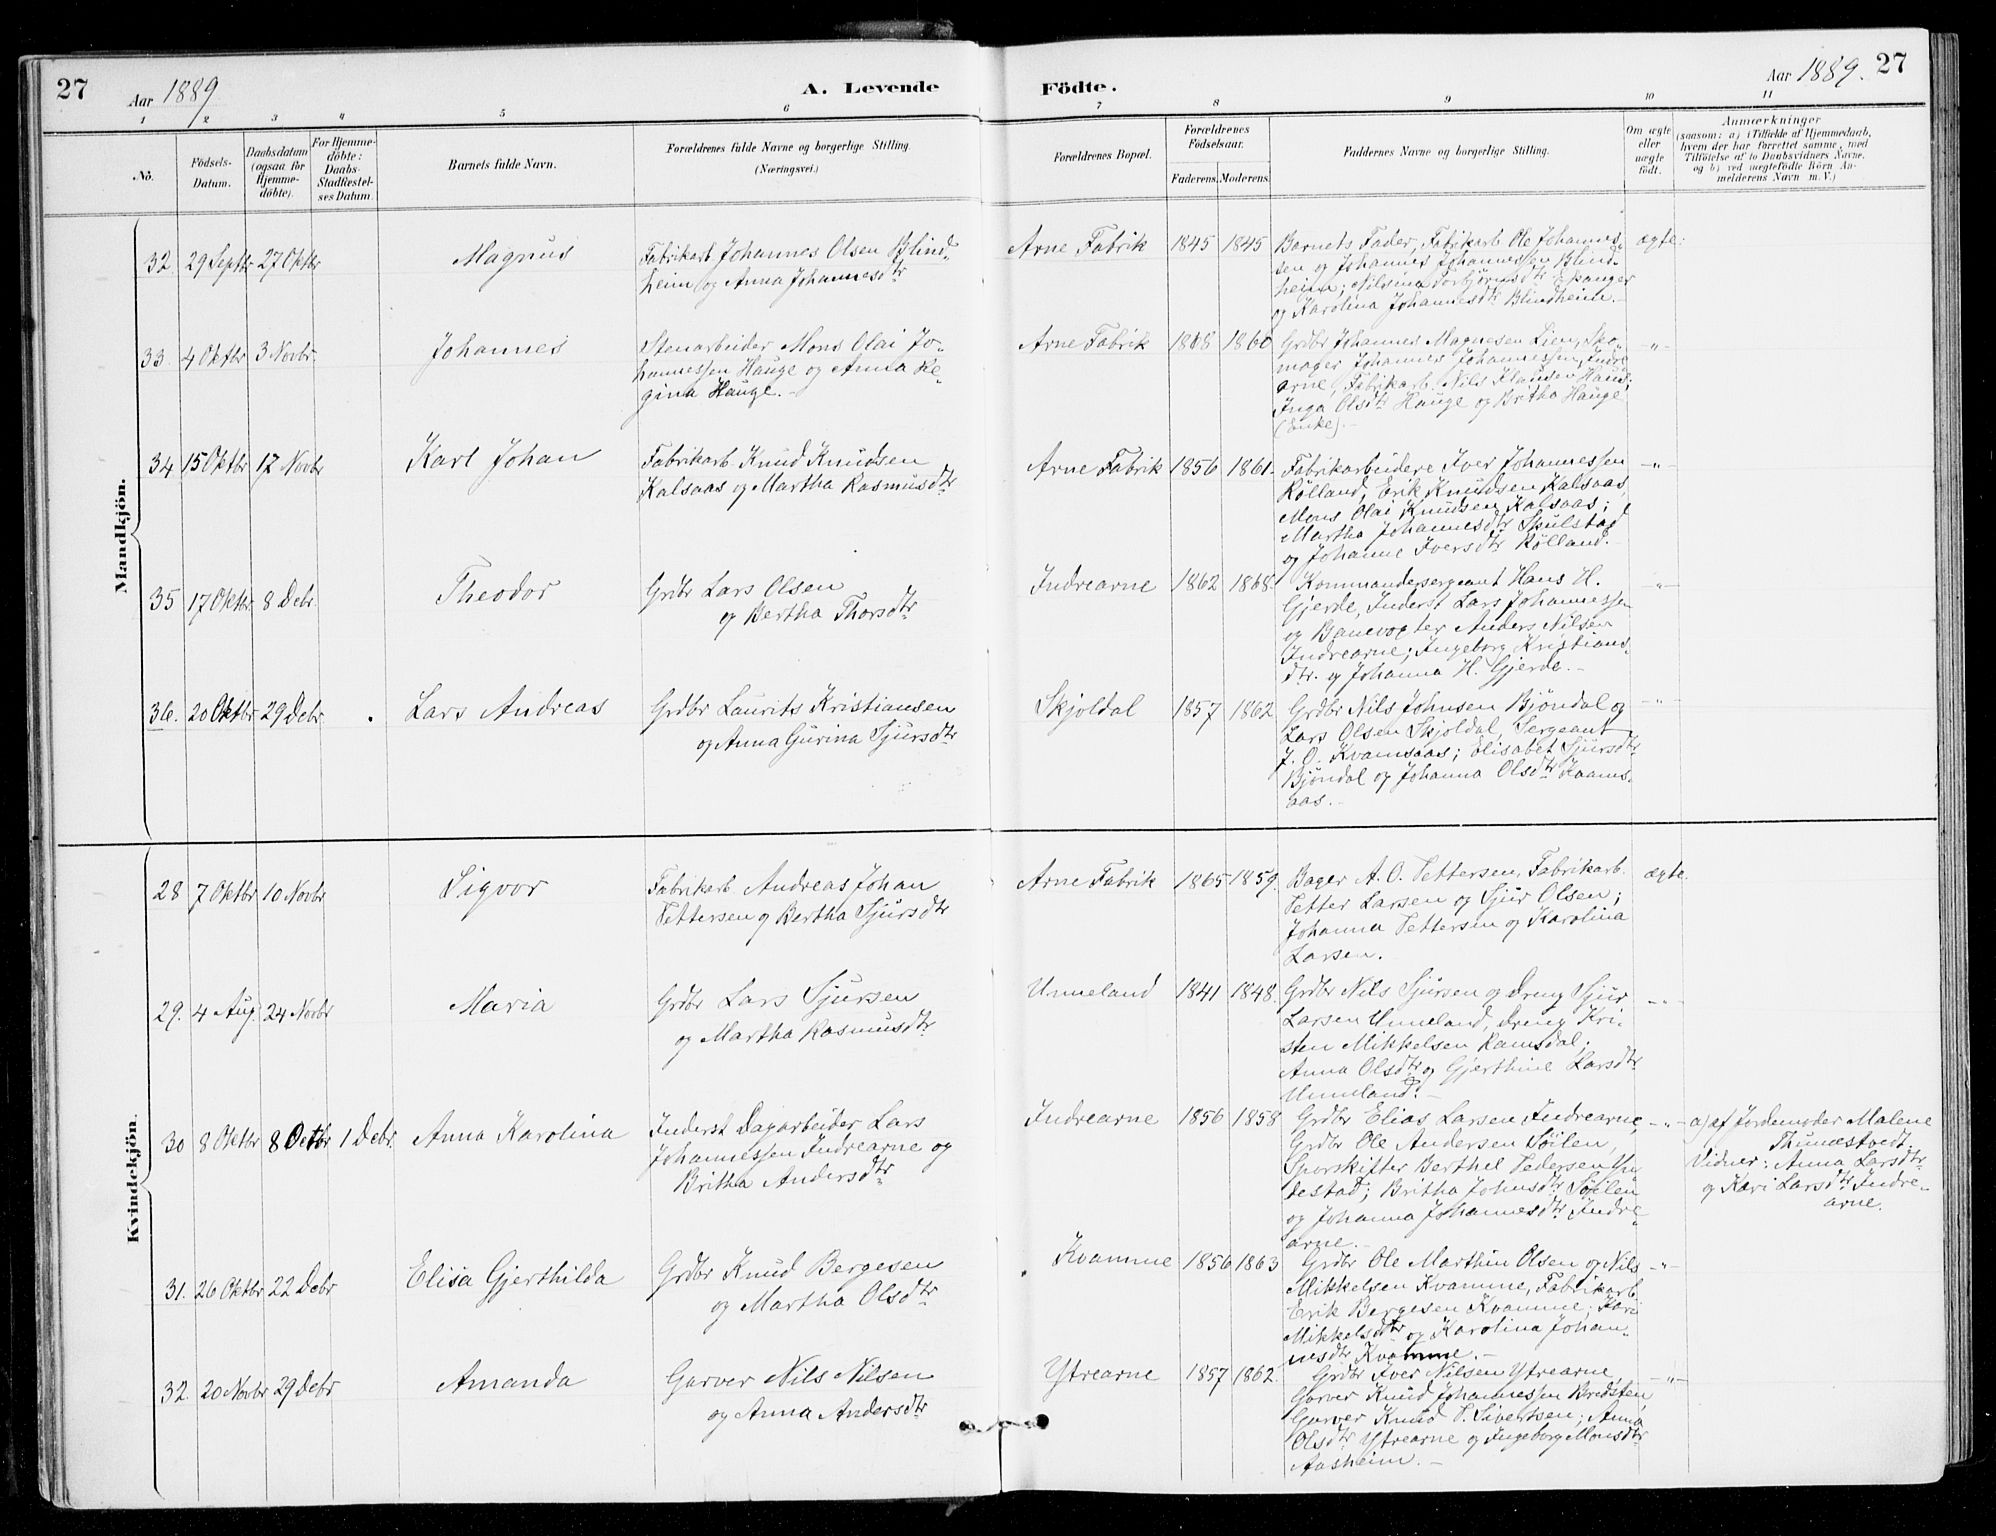 27
Aar 1889
A. Levende
Födte.
Aar 1889.
27
1 2 3 4 5 6 7 8 9 10 11
No.
Födsels-
Datum.
Daabsdatum
(ogsaa for
Hjemme-
döbte).
For Hjemme-
döbte:
Daabs-
Stadfæstel-
ses Datum.
Barnets fulde Navn.
Forældrenes fulde Navne og borgerlige Stilling.
(Næringsvei.)
Forældrenes Bopæl.
Forældrenes
Födselsaar.
Faderens. Moderens.
Faddernes Navne og borgerlige Stilling.
Om ægte
eller
uægte
födt.
Anmærkninger
(saasom: a) i Tilfælde af Hjemmedaab,
hvem der har forrettet samme, med
Tilföielse af to Daabsvidners Navne,
og b) ved uægtefödte Börn An-
melderens Navn m. V.)
Mandkjön.
32 29 Septbr 27 Oktbr
Magnus
Fabrikarb Johannes Olsen Blind-
heim og Anna Johannesdtr
Arne Fabrik 1845 1845
Barnets Fader, Fabrikarb Ole Johannes-
sen og Johannes Johannessen Blind-
heim; Nilsina Torbjørnsdtr Espanger
og Karolina Johannesdtr Blindheim.-
ægte.
33. 4 Oktbr 3 Novbr.
Johannes
Stenarbeider Mons Olai Jo-
hannessen Hauge og Anna Re-
gina Hauge.-
Arne Fabrik 1860
Grdbr Johannes Magnesen Lien, Sko-
mager Johannes Johannessen, Indre
arne, Fabrikarb. Nils
Inga Olsdtr Hauge og Britha Hauge
(Enke).-
-"-
34 15 Oktbr 17 Novbr
Karl Johan
Fabrikarb Knud Knudsen
Kalsaas og Martha Rasmusdtr
Arne Fabrik 1856 1861.
Fabrikarbeidere Iver Johannessen
Rølland, Erik Knudsen Kalsaas,
Mons Olai Knudsen Kalsaas;
Martha Johannesdtr Skulstad
og Johanne Iversdtr Rølland.-
-"-
35 17 Oktbr. 8 Debr.
Theodor
Grdbr Lars Olsen
og Bertha Thorsdtr
Indrearne 1862 1868.
Kommandersergeant Hans H.
Gjerde, Inderst Lars Johannessen
og Banevogter Anders Nilsen
Indrearne; Ingeborg Kristians-
dtr. og Johanna H. Gjerde.-
-"-
36. 20 Oktbr 29 Debr.
Lars Andreas
Grdbr Laurits Kristiansen
og Anna Gurina Sjursdtr
Skjoldal 1857 1862
Grdbr Nils Johnsen Bjøndal og
Lars Olsen Skjoldal, Sergeant
J. O. Kvamsaas; Elisabet Sjursdtr
Bjøndal og Johanna Olsdtr Kvams-
aas.-
-"-
Kvindekjön.
28 7 Oktbr 10 Novbr
Sigvor
Fabrikarb Andreas Johan
Pettersen og Bertha Sjursdtr
Arne Fabrik 1865 1859.
Bager A. O. Pettersen, Fabrikarb.
Petter Larsen og Sjur Olsen;
Johanna Pettersen og Karolina
Larsen.
ægte.
29. 4 Aug. 24 Novbr
Maria
Grdbr Lars Sjursen
og Martha Rasmusdtr
Unneland 1841 1848.
Grdbr Nils Sjursen og Dreng Sjur
Larsen Unneland, Dreng Kri-
sten Mikkelsen Ramsdal;
Anna Olsdtr og Gjerthine Larsdtr
Unneland.-
-"-
30 8 Oktbr 8 Octbr 1 Debr.
Anna Karolina
Inderst Dagarbeider Lars
Johannessen Indrearne og
Britha Andersdtr
Indrearne 1856 1858
Grdbr Elias Larsen Indrearne,
Grdbr Ole Andersen Søilen,
Sporskifter Berthel Pedersen
Britha Johnsdtr Søilen
og Johanna Johannesdtr Indre-
arne.-
-"-
a) af Jordemoder Malene
Thunestvedt.
Vidner: Anna Larsdtr
og Kari Larsdtr Indre-
arne.
31. 26 Oktbr 22 Debr
Elisa Gjerthilda
Grdbr Knud Bergesen
og Martha Olsdtr
Kvamme 1856 1863
Grdbr Ole Marthin Olsen og Nils
Mikkelsen Kvamme, Fabrikarb
Erik Bergesen Kvamme; Kari
Mikkelsdtr og Karolina Johan-
nesdtr Kvamme.-
-"-
32. 20 Novbr 29 Debr
Amanda
Garver Nils Nilsen
og Anna Andersdtr
Ytrearne 1857 1862.
Grdbr Iver Nilsen Ytrearne,
Garver Knud Johannessen Bredsten,
Garver Knud S. Sivertsen; Anna
Olsdtr Ytrearne og Ingeborg Monsdtr
Aasheim.-
-"-